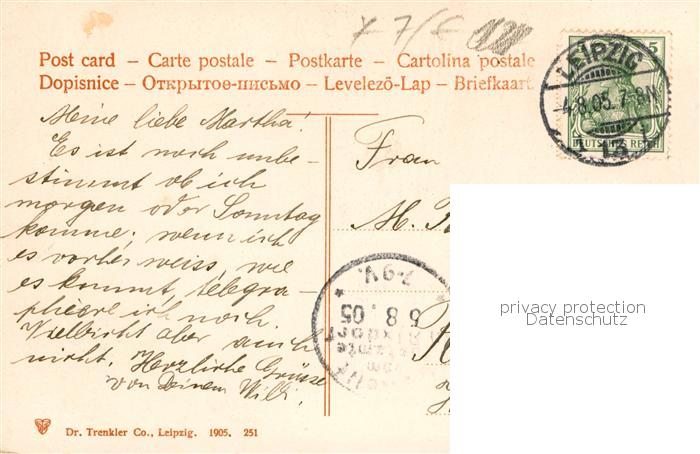 Post card – Carte postale – Postkarte – Cartolina postale
Dopisnice – Открытое-письмо – Levelező-Lap – Briefkaart.
LEIPZIG
4.8.05. 7-8N
13
5
DEUTSCHES REICH
Meine liebe Martha!
Es ist noch unbe-
stimmt ob ich
morgen oder Sonntag
komme; wenn ich
es vorher weiss, wie
es kommt, telegra-
phiere ich noch.
Vielleicht aber auch
nicht. Herzliche Grüsse
von Deinem Willi.
Frau
M.
7-9V.
5 8. 05
Rixdorf
privacy protection
Datenschutz
Dr. Trenkler Co., Leipzig. 1905. 251